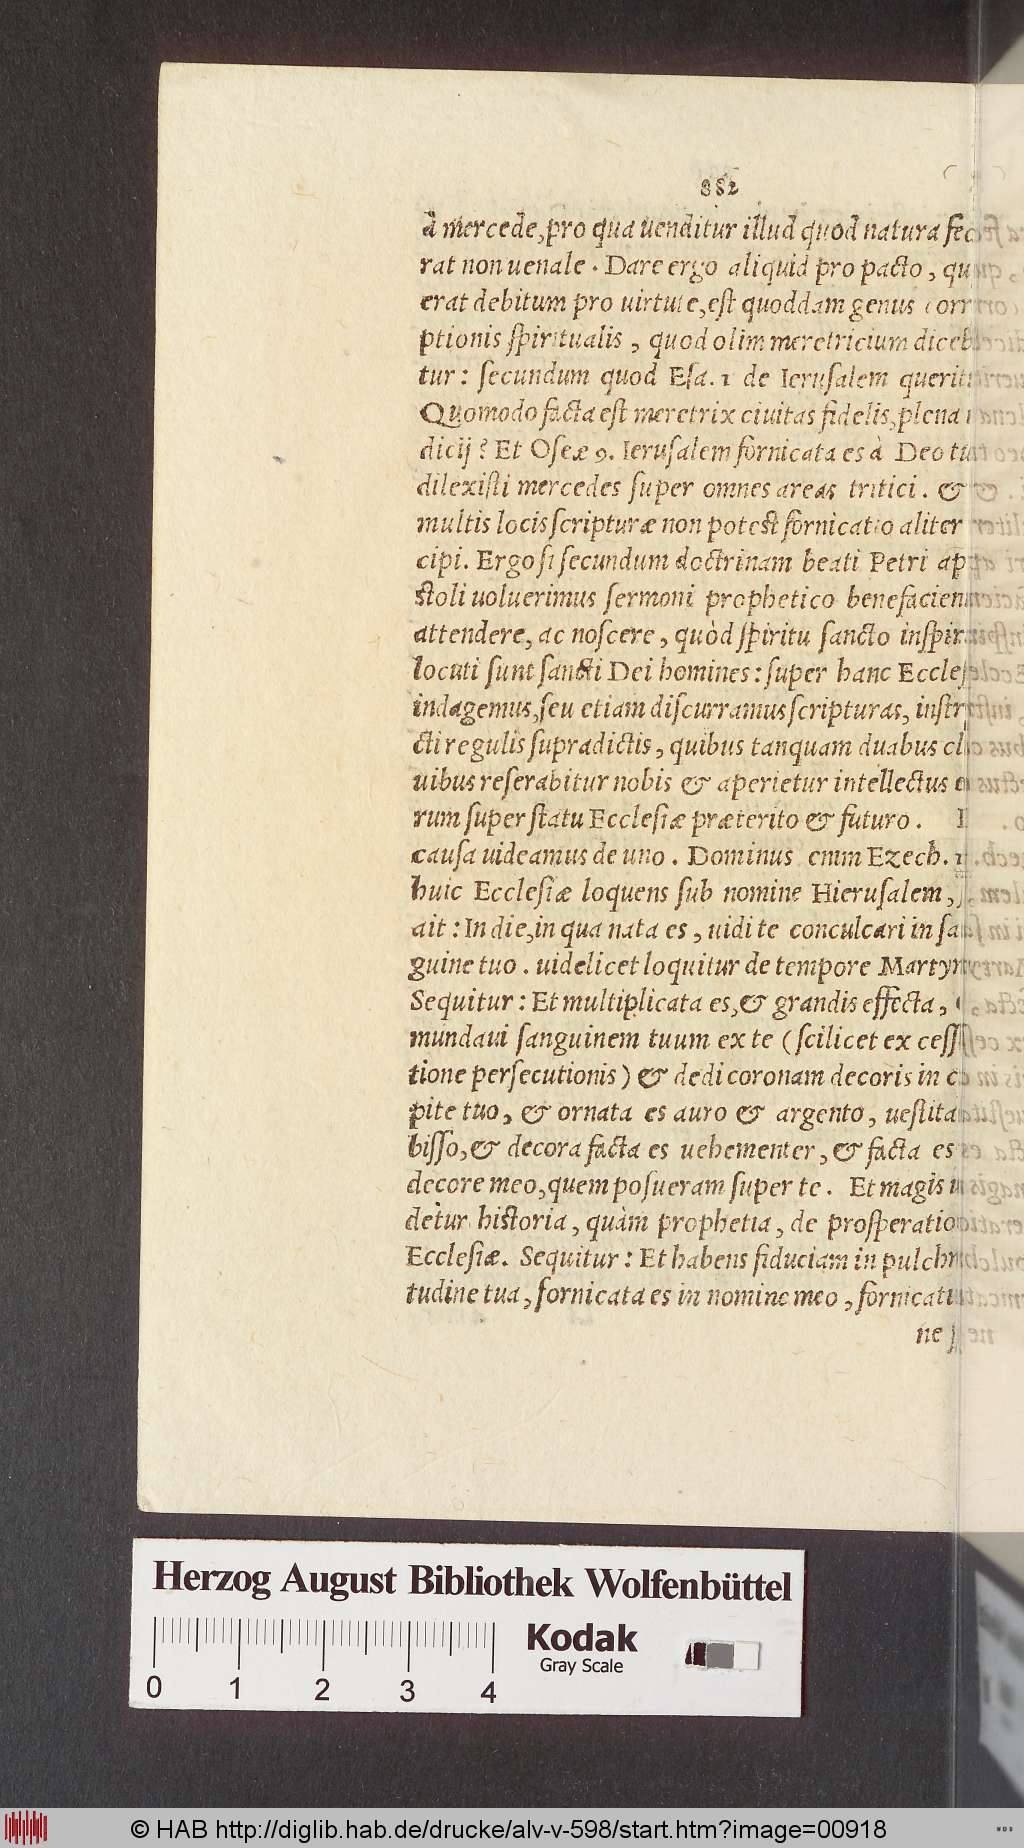 882
à mercede, pro qua uenditur illud quod natura fec
rat non uenale. Dare ergo aliquid pro pacto, qu
erat debitum pro uirtute, eſt quoddam genus corr
ptionis ſpiritualis, quod olim meretricium diceb
tur: ſecundum quod Eſa. 1 de Ieruſalem querit
Quomodo facta eſt meretrix ciuitas fidelis, plena
dicij? Et Oſeæ 9. Ieruſalem fornicata es à Deo tu
dilexiſti mercedes ſuper omnes areas tritici. &
multis locis ſcripturæ non poteſt fornicatio aliter
cipi. Ergo ſi ſecundum doctrinam beati Petri ap
ſtoli uoluerimus ſermoni prophetico benefacien
attendere, ac noſcere, quòd ſpiritu ſancto inſpir
locuti ſunt ſancti Dei homines: ſuper hanc Eccleſ
indagemus, ſeu etiam diſcurramus ſcripturas, inſtr
cti regulis ſupradictis, quibus tanquam duabus cl
uibus reſerabitur nobis & aperietur intellectus e
rum ſuper ſtatu Eccleſiæ præterito & futuro.
cauſa uideamus de uno. Dominus enim Ezech. 1
huic Eccleſiæ loquens ſub nomine Hieruſalem,
ait: In die, in qua nata es, uidi te conculcari in ſa
guine tuo. uidelicet loquitur de tempore Martyr
Sequitur: Et multiplicata es, & grandis effecta,
mundaui ſanguinem tuum ex te (ſcilicet ex ceſſ
tione perſecutionis) & dedi coronam decoris in c
pite tuo, & ornata es auro & argento, ueſtita
biſſo, & decora facta es uehementer, & facta es
decore meo, quem poſueram ſuper te. Et magis
detur hiſtoria, quàm prophetia, de proſperatio
Eccleſiæ. Sequitur: Et habens fiduciam in pulchr
tudine tua, fornicata es in nomine meo, fornicati
ne
Herzog August Bibliothek Wolfenbüttel
0 1 2 3 4
Kodak
Gray Scale
© HAB http://diglib.hab.de/drucke/alv-v-598/start.htm?image=00918